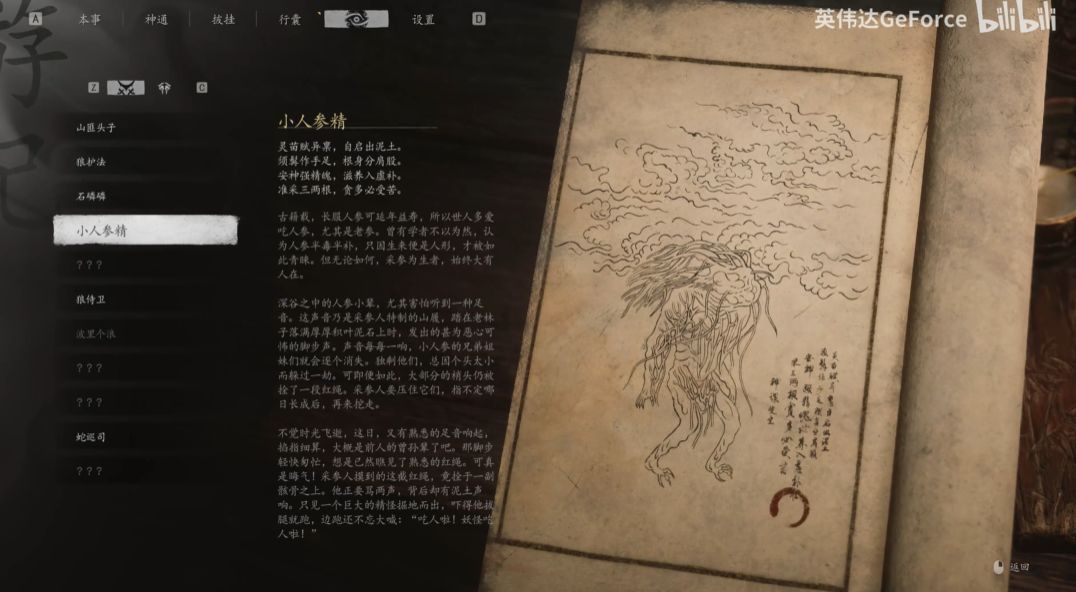 A 本事 神通 披挂 行囊 设置 D
英伟达GeForce bilibili
Z C
山匪头子
狼护法
石磷磷
小人参精
？？？
狼侍卫
波里个浪
？？？
？？？
蛇巡司
？？？
小人参精
灵苗赋异禀，自启出泥土。
须鬣作手足，根身分肩股。
安神强精魄，滋养入虚补。
准采三两根，贪多必受苦。
古籍载，长服人参可延年益寿，所以世人多爱
吃人参，尤其是老参。曾有学者不以为然，认
为人参半毒半补，只因生来便是人形，才被如
此青睐。但无论如何，采参为生者，始终大有
人在。
深谷之中的人参小辈，尤其害怕听到一种足
音。这声音乃是采参人特制的山履，踏在老林
子落满厚厚积叶泥石上时，发出的甚为恶心可
怖的脚步声。声音每每一响，小人参的兄弟姐
妹们就会逐个消失。独剩他们，总因个头太小
而躲过一劫。可即便如此，大部分的梢头仍被
拴了一段红绳。采参人要压住它们，指不定哪
日长成后，再来挖走。
不觉时光飞逝，这日，又有熟悉的足音响起，
掐指细算，大概是前人的曾孙辈了吧。那脚步
轻快匆忙，想是已然瞧见了熟悉的红绳。可真
是晦气！采参人摸到的这截红绳，竟拴于一副
骸骨之上。他正要骂两声，背后却有泥土声
响。只见一个巨大的精怪掘地而出，吓得他拔
腿就跑，边跑还不忘大喊：“吃人啦！妖怪吃
人啦！”
返回